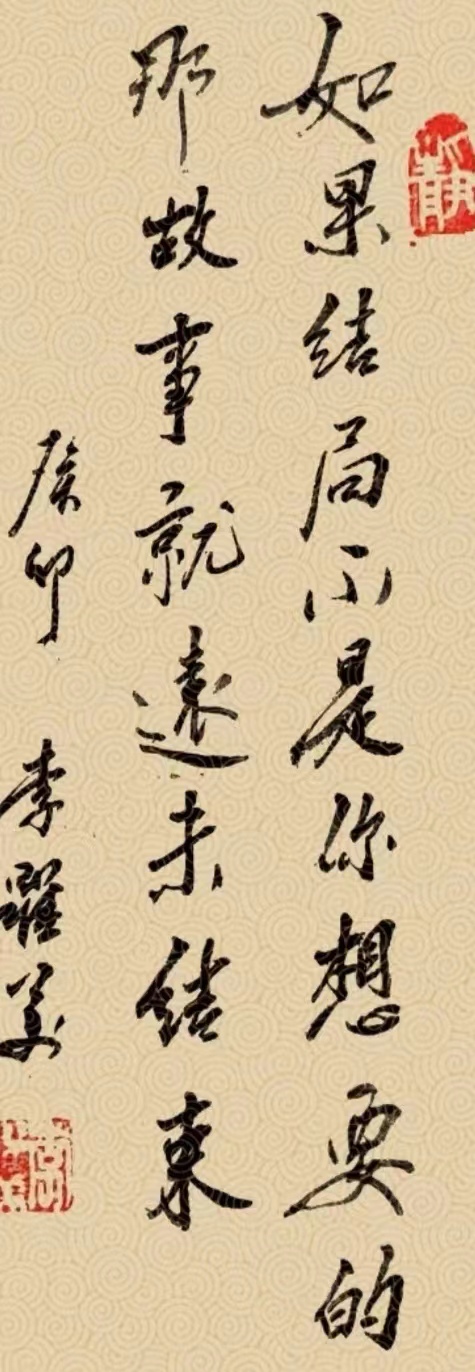 如果结局不是你想要的
那故事就遠未结束
癸卯 李羅
靜